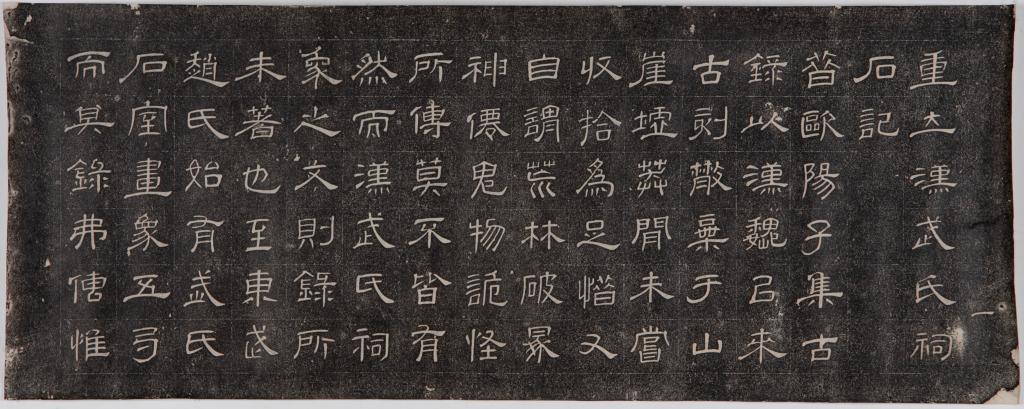 重立漢武氏祠
石記
昔歐陽子集古
錄以漢魏已來
古刻散棄于山
崖墟莽閒未嘗
收拾為足惜又
自謂荒林破冢
神僊鬼物詭怪
所傳莫不皆有
然而漢武氏祠
象之文則錄所
未著也至東武
趙氏始有武氏
石室畫象五弓
而其錄弗傳惟
一